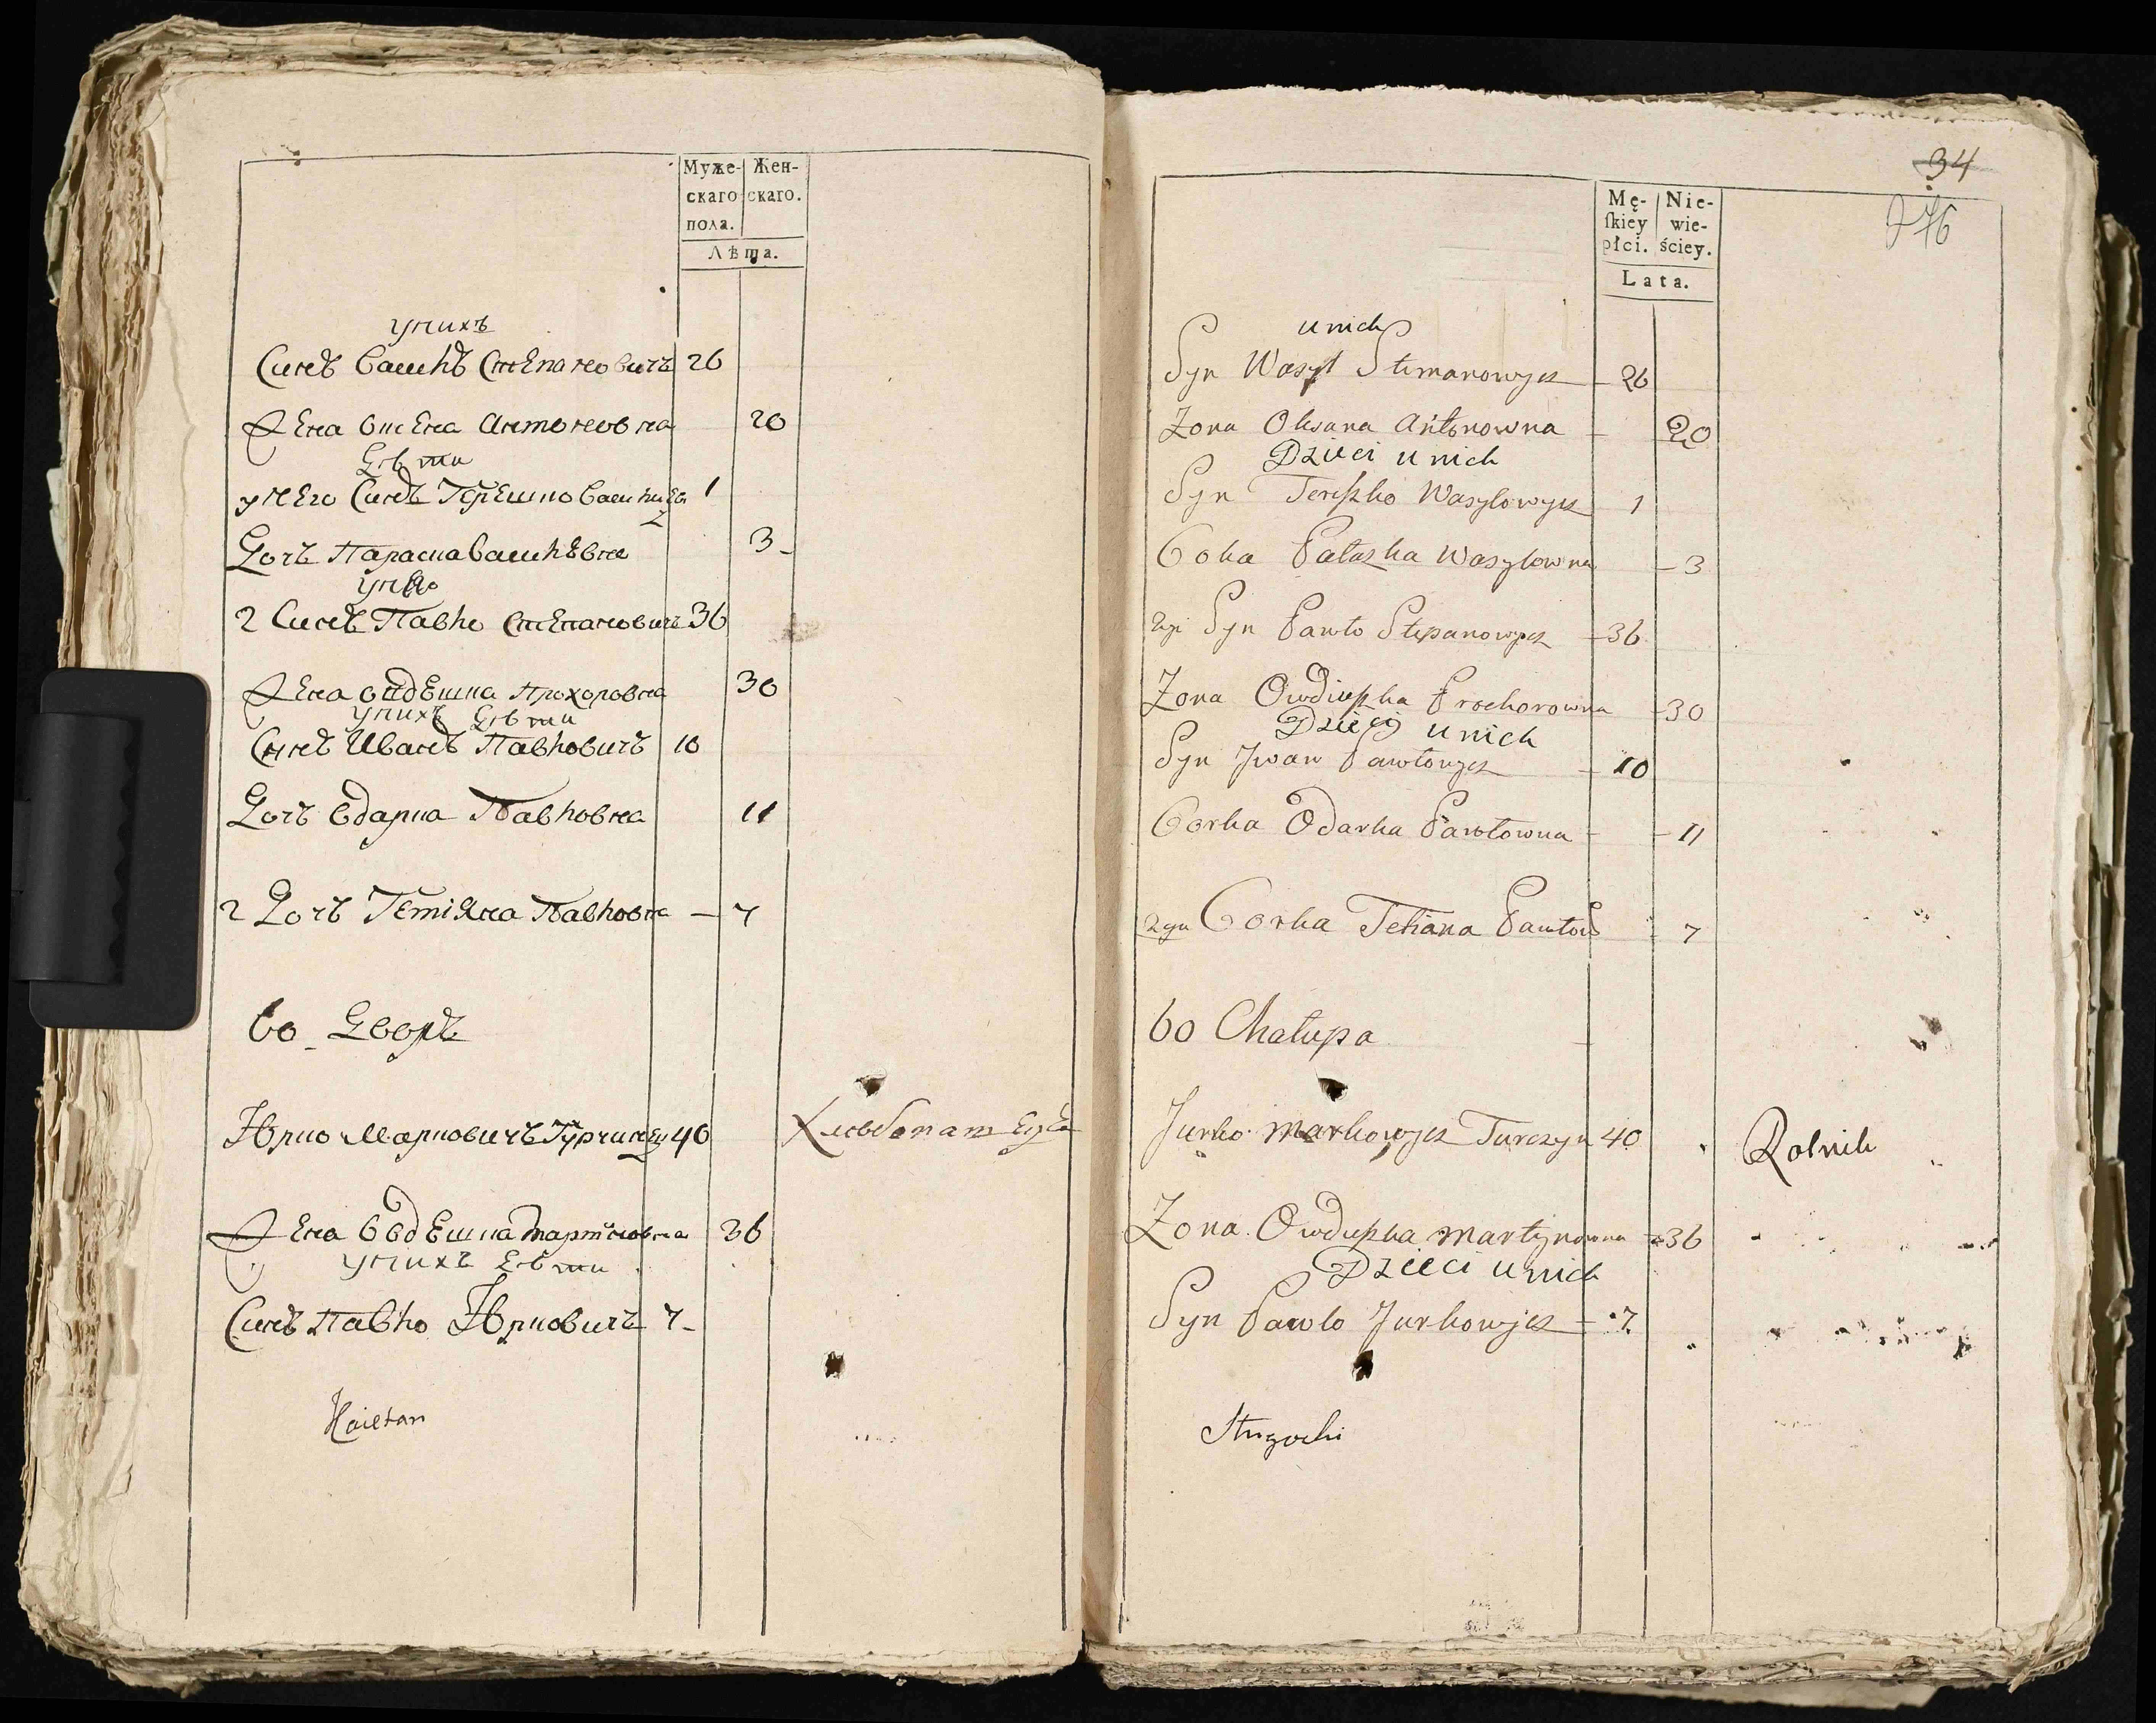 Муже- Жен-
скаго скаго.
пола.
Лѣта.
унихъ
Синъ Василь Степановичъ 26
Жена Оксена Антоновна 20
Дѣти
унего Синъ Терешко Василиев 1
Дочъ Параска Василѣвна 3
2 Синъ Павло Степановичъ 36
Жена Овдешка Прохоровна 30
унихъ Дѣти
Синъ Иванъ Павловичъ 10
Дочъ Одарка Павловна 11
2 Дочъ Тетіяна Павловна 7
60 Дворъ
Юрко Марковичъ Турчинъ 40
Жена Овдешка Мартиновна 36
унихъ Дѣти
Синъ Павло Юрковичъ 7
34
276
Mę- Nie-
ſkiey wie-
płci. ściey.
Lata.
unich
Syn Wasyl 26
Zona Oksana Antonowna 20
Dzieci unich
Syn Tereszko Wasylowycz 1
Palazka Wasylowna 3
Syn Pawło Stepanowycz 36
Zona Owdieszka Prochorowna 30
Dzieci unich
Syn Jwan Pawłowycz 10
Corka Odarka Pawłowna 11
2ga Corka Tetiana Pawłow 7
60 Chałupa
Jurko Markowycz Turczyn 40 Rolnik
Zona Owdieszka Martynowna 36
Dzieci unich
Syn Pawlo Jurkowycz 7